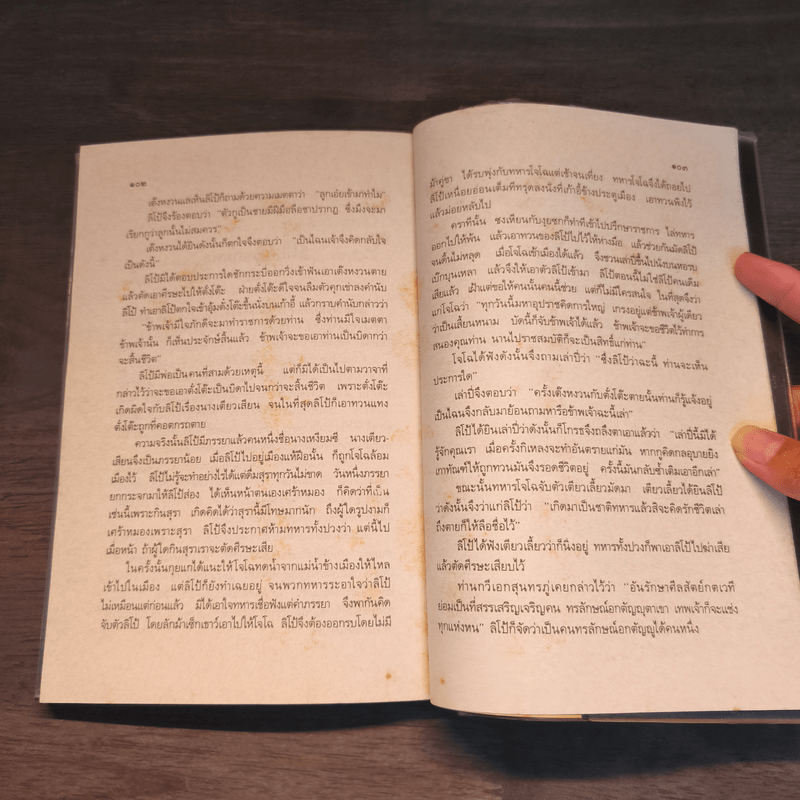 ๑๐๒
เต๊งหงวนแลเห็นลิโป้ก็ถามด้วยความเมตตาว่า "ลูกเอ๋ยเข้ามาทำไม"
ลิโป้จึงร้องตอบว่า "ตัวกูเป็นชายมีฝีมือลือชาปรากฏ ซึ่งมึงจะมา
เรียกกูว่าลูกนั้นไม่สมควร"
เต๊งหงวนได้ยินดังนั้นก็ตกใจจึงตอบว่า "เป็นไฉนเจ้าจึงคิดกลับใจ
เป็นดังนี้"
ลิโป้มิได้ตอบประการใดชักกระบี่ออกวิ่งเข้าฟันเอาเต๊งหงวนตาย
แล้วตัดเอาศีรษะไปให้ตั๋งโต๊ะ ฝ่ายตั๋งโต๊ะดีใจจนลืมตัวคุกเข่าลงคำนับ
ลิโป้ ทำเอาลิโป้ตกใจเข้าอุ้มตั๋งโต๊ะขึ้นนั่งบนเก้าอี้ แล้วกราบคำนับกล่าวว่า
"ข้าพเจ้ามีใจภักดีจะมาทำราชการด้วยท่าน ซึ่งท่านมีใจเมตตา
ข้าพเจ้านั้น ก็เห็นประจักษ์สิ้นแล้ว ข้าพเจ้าจะขอเอาท่านเป็นบิดากว่า
จะสิ้นชีวิต"
ลิโป้มีพ่อเป็นคนที่สามด้วยเหตุนี้ แต่ก็มิได้เป็นไปตามวาจาที่
กล่าวไว้ว่าจะขอเอาตั๋งโต๊ะเป็นบิดาไปจนกว่าจะสิ้นชีวิต เพราะตั๋งโต๊ะ
เกิดผิดใจกับลิโป้เรื่องนางเตียวเสียน จนในที่สุดลิโป้ก็เอาทวนแทง
ตั๋งโต๊ะถูกที่คอตกรถตาย
ความจริงนั้นลิโป้มีภรรยาแล้วคนหนึ่งชื่อนางเหงียมซี นางเตียว-
เสียนจึงเป็นภรรยาน้อย เมื่อลิโป้ไปอยู่เมืองแห้ฝือนั้น ก็ถูกโจโฉล้อม
เมืองไว้ ลิโป้ไม่รู้จะทำอย่างไรได้แต่ดื่มสุราทุกวันไม่ขาด วันหนึ่งภรรยา
ยกกระจกมาให้ลิโป้ส่อง ได้เห็นหน้าตนเองเศร้าหมอง ก็คิดว่าที่เป็น
เช่นนี้เพราะกินสุรา เกิดคิดได้ว่าสุรานี้มีโทษมากนัก ถึงผู้ใดรูปงามก็
เศร้าหมองเพราะสุรา ลิโป้จึงประกาศห้ามทหารทั้งปวงว่า แต่นี้ไป
เมื่อหน้า ถ้าผู้ใดกินสุราเราจะตัดศีรษะเสีย
ในครั้งนั้นกุยแกได้แนะให้โจโฉทดน้ำจากแม่น้ำข้างเมืองให้ไหล
เข้าไปในเมือง แต่ลิโป้ก็ยังทำเฉยอยู่ จนพวกทหารระอาใจว่าลิโป้
ไม่เหมือนแต่ก่อนแล้ว มิได้เอาใจทหารเชื่อฟังแต่คำภรรยา จึงพากันคิด
จับตัวลิโป้ โดยลักม้าเซ็กเธาว์เอาไปให้โจโฉ ลิโป้จึงต้องออกรบโดยไม่มี
๑๐๓
ม้าคู่ขา ได้รบพุ่งกับทหารโจโฉแต่เช้าจนเที่ยง ทหารโจโฉจึงได้ถอยไป
ลิโป้เหนื่อยอ่อนเต็มทีทรุดลงนั่งที่เก้าอี้ข้างประตูเมือง เอาทวนพิงไว้
แล้วม่อยหลับไป
คราที่นั้น ซงเหียนกับงุยซกก็ทำทีเข้าไปปรึกษาราชการ ไล่ทหาร
ออกไปให้พ้น แล้วเอาทวนของลิโป้ไปไว้ให้ห่างมือ แล้วช่วยกันมัดลิโป้
จนดิ้นไม่หลุด เมื่อโจโฉเข้าเมืองได้แล้ว จึงชวนเล่าปี่ขึ้นไปนั่งบนหอรบ
เป๊กบุนเหลา แล้วจึงให้เอาตัวลิโป้เข้ามา ลิโป้ตอนนี้ไม่ใช่ลิโป้คนเดิม
เสียแล้ว เฝ้าแต่ขอให้คนนั้นคนนี้ช่วย แต่ก็ไม่มีใครสนใจ ในที่สุดจึงว่า
แก่โจโฉว่า "ทุกวันนี้มหาอุปราชคิดการใหญ่ เกรงอยู่แต่ข้าพเจ้าผู้เดียว
ว่าเป็นเสี้ยนหนาม บัดนี้ก็จับข้าพเจ้าได้แล้ว ข้าพเจ้าจะขอชีวิตไว้ทำการ
สนองคุณท่าน นานไปราชสมบัติก็จะเป็นสิทธิ์แก่ท่าน"
โจโฉได้ฟังดังนั้นจึงถามเล่าปี่ว่า "ซึ่งลิโป้ว่าฉะนี้ ท่านจะเห็น
ประการใด"
เล่าปี่จึงตอบว่า "ครั้งเต๊งหงวนกับตั๋งโต๊ะตายนั้นท่านก็รู้แจ้งอยู่
เป็นไฉนจึงกลับมาย้อนถามหารือข้าพเจ้าฉะนี้เล่า"
ลิโป้ได้ยินเล่าปี่ว่าดังนั้นก็โกรธจึงถลึงตาเอาแล้วว่า "เล่าปี่นี้มิได้
รู้จักคุณเรา เมื่อครั้งกิเหลงจะทำอันตรายแก่มัน หากกูคิดกลอุบายยิง
เกาทัณฑ์ให้ถูกทวนมันจึงรอดชีวิตอยู่ ครั้งนี้มันกลับซ้ำเติมเอาอีกเล่า"
ขณะนั้นทหารโจโฉจับตัวเตียวเลี้ยวมัดมา เตียวเลี้ยวได้ยินลิโป้
ว่าดังนั้นจึงว่าแก่ลิโป้ว่า "เกิดมาเป็นชาติทหารแล้วสิจะคิดรักชีวิตเล่า
ถึงตายก็ให้ลือชื่อไว้"
ลิโป้ได้ฟังเตียวเลี้ยวว่าก็นิ่งอยู่ ทหารทั้งปวงก็พาเอาลิโป้ไปฆ่าเสีย
แล้วตัดศีรษะเสียบไว้
ท่านกวีเอกสุนทรภู่เคยกล่าวไว้ว่า "อันรักษาศีลสัตย์กตเวที
ย่อมเป็นที่สรรเสริญเจริญคน ทรลักษณ์อกตัญญุตาเขา เทพเจ้าก็จะแช่ง
ทุกแห่งหน" ลิโป้ก็จัดว่าเป็นคนทรลักษณ์อกตัญญูได้คนหนึ่ง